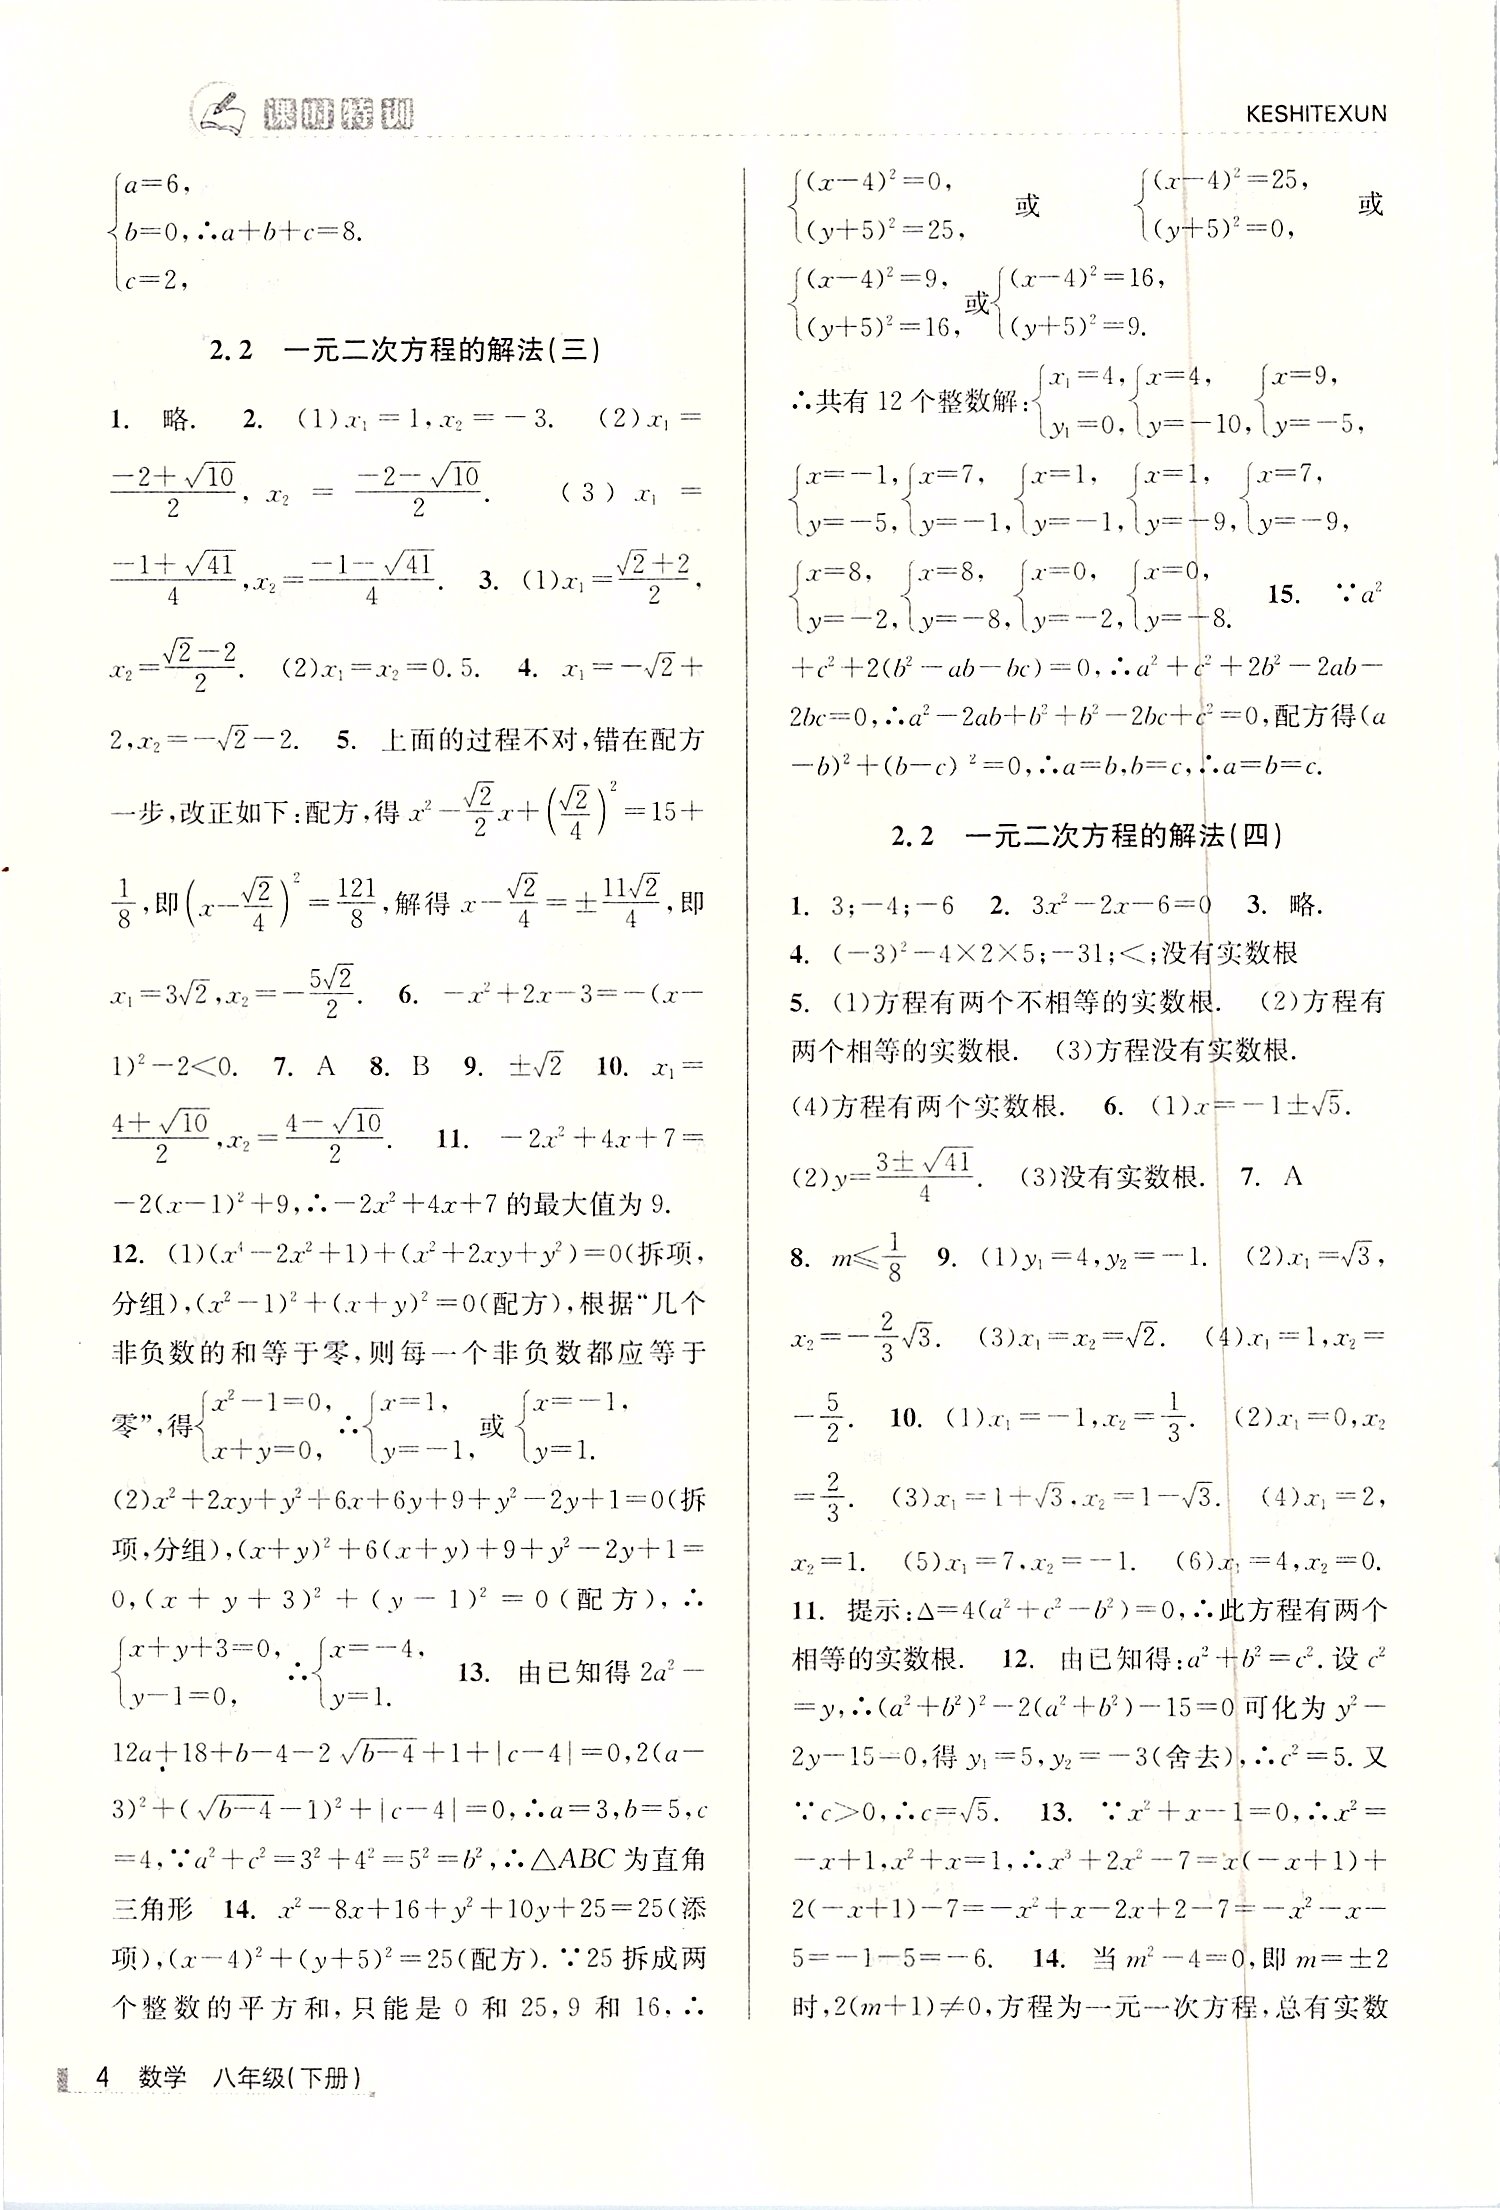 课时特训
KESHITEXUN
{a=6,
b=0,∴a+b+c=8.
c=2,
2.2 一元二次方程的解法(三)
1. 略. 2. (1)x₁=1,x₂=-3. (2)x₁=
(-2+√10)/2, x₂ = (-2-√10)/2. (3) x₁ =
(-1+√41)/4,x₂=(-1-√41)/4. 3. (1)x₁=(√2+2)/2,
x₂=(√2-2)/2. (2)x₁=x₂=0.5. 4. x₁=-√2+
2,x₂=-√2-2. 5. 上面的过程不对,错在配方
一步,改正如下:配方,得 x²-(√2/2)x+(√2/4)²=15+
1/8,即(x-√2/4)²=121/8,解得 x-√2/4=±11√2/4,即
x₁=3√2,x₂=-5√2/2. 6. -x²+2x-3=-(x-
1)²-2<0. 7. A 8. B 9. ±√2 10. x₁=
(4+√10)/2,x₂=(4-√10)/2. 11. -2x²+4x+7=
-2(x-1)²+9,∴-2x²+4x+7 的最大值为 9.
12. (1)(x⁴-2x²+1)+(x²+2xy+y²)=0(拆项,
分组),(x²-1)²+(x+y)²=0(配方),根据“几个
非负数的和等于零,则每一个非负数都应等于
零”,得{x²-1=0, x+y=0, ∴{x=1, y=-1, 或{x=-1, y=1.
(2)x²+2xy+y²+6x+6y+9+y²-2y+1=0(拆
项,分组),(x+y)²+6(x+y)+9+y²-2y+1=
0,(x+y+3)²+(y-1)²=0(配方),∴
{x+y+3=0, y-1=0, ∴{x=-4, y=1. 13. 由已知得 2a²-
12a+18+b-4-2√(b-4)+1+|c-4|=0,2(a-
3)²+(√(b-4)-1)²+|c-4|=0,∴a=3,b=5,c
=4,∵a²+c²=3²+4²=5²=b²,∴△ABC 为直角
三角形 14. x²-8x+16+y²+10y+25=25(添
项),(x-4)²+(y+5)²=25(配方).∵25 拆成两
个整数的平方和,只能是 0 和 25,9 和 16,∴
{(x-4)²=0, (y+5)²=25, 或 {(x-4)²=25, (y+5)²=0, 或
{(x-4)²=9, (y+5)²=16, 或{(x-4)²=16, (y+5)²=9.
∴共有 12 个整数解:{x₁=4, y₁=0, {x=4, y=-10, {x=9, y=-5,
{x=-1, y=-5, {x=7, y=-1, {x=1, y=-1, {x=1, y=-9, {x=7, y=-9,
{x=8, y=-2, {x=8, y=-8, {x=0, y=-2, {x=0, y=-8. 15. ∵a²
+c²+2(b²-ab-bc)=0,∴a²+c²+2b²-2ab-
2bc=0,∴a²-2ab+b²+b²-2bc+c²=0,配方得(a
-b)²+(b-c)²=0,∴a=b,b=c,∴a=b=c.
2.2 一元二次方程的解法(四)
1. 3;-4;-6 2. 3x²-2x-6=0 3. 略.
4. (-3)²-4×2×5;-31;<;没有实数根
5. (1)方程有两个不相等的实数根. (2)方程有
两个相等的实数根. (3)方程没有实数根.
(4)方程有两个实数根. 6. (1)x=-1±√5.
(2)y=(3±√41)/4. (3)没有实数根. 7. A
8. m≤1/8 9. (1)y₁=4,y₂=-1. (2)x₁=√3,
x₂=-(2/3)√3. (3)x₁=x₂=√2. (4)x₁=1,x₂=
-5/2. 10. (1)x₁=-1,x₂=1/3. (2)x₁=0,x₂
=2/3. (3)x₁=1+√3,x₂=1-√3. (4)x₁=2,
x₂=1. (5)x₁=7,x₂=-1. (6)x₁=4,x₂=0.
11. 提示:Δ=4(a²+c²-b²)=0,∴此方程有两个
相等的实数根. 12. 由已知得:a²+b²=c².设 c²
=y,∴(a²+b²)²-2(a²+b²)-15=0 可化为 y²-
2y-15=0,得 y₁=5,y₂=-3(舍去),∴c²=5.又
∵c>0,∴c=√5. 13. ∵x²+x-1=0,∴x²=
-x+1,x²+x=1,∴x³+2x²-7=x(-x+1)+
2(-x+1)-7=-x²+x-2x+2-7=-x²-x-
5=-1-5=-6. 14. 当 m²-4=0,即 m=±2
时,2(m+1)≠0,方程为一元一次方程,总有实数
4 数学 八年级(下册)